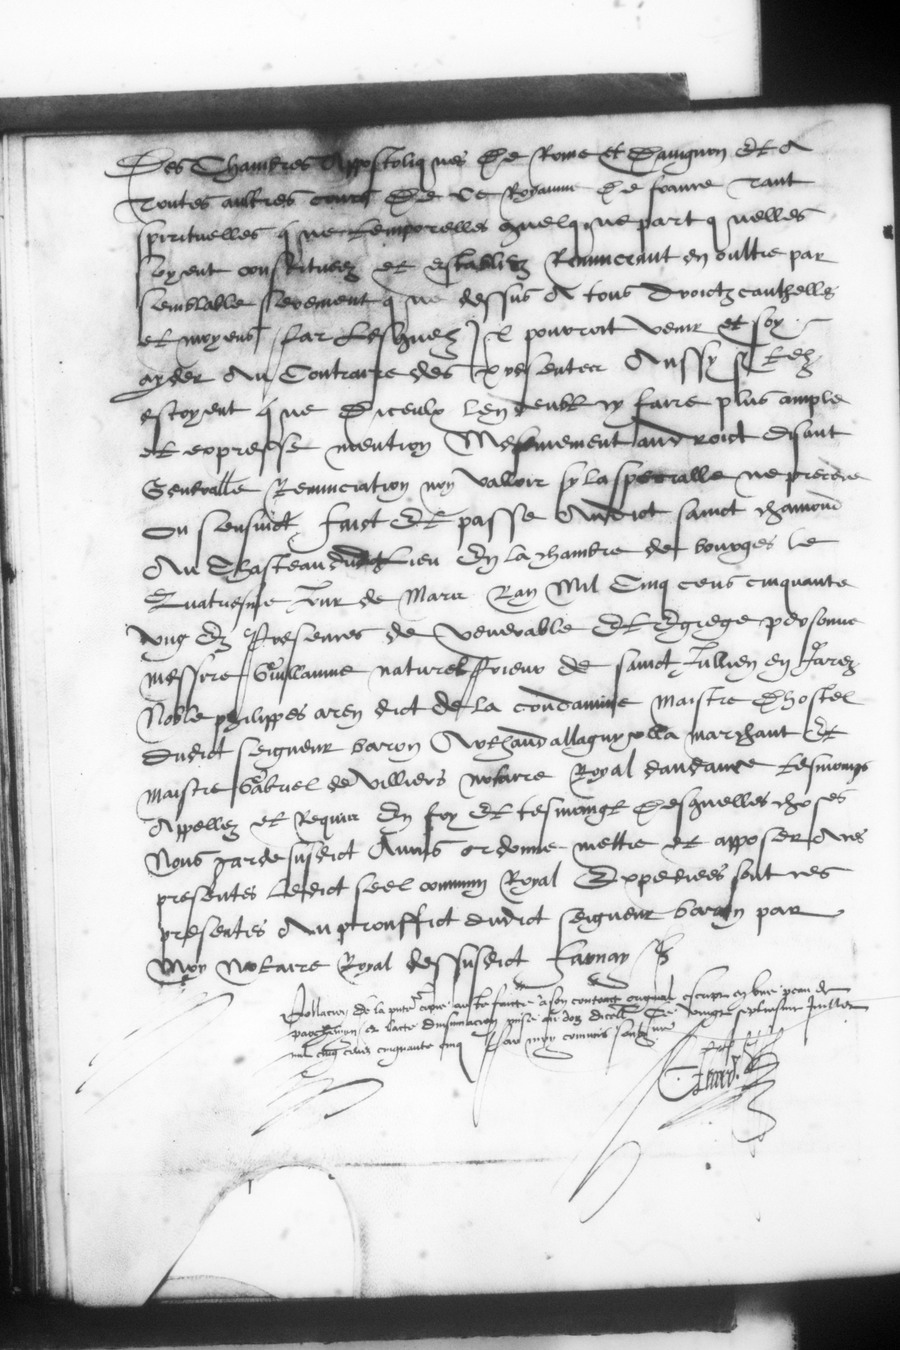 Des Chambres Appostolicques De Rome et Davignon Et A
Toutes aultres cours De Ce Royaume De france Tant
spirituelles que temporelles quelque part quelles
soyent constituez et establiz Renuncant en oultre par
semblable serement que dessus A tous Droictz cauthelles
et moyens par lesquelz Il pourroit venir et soy
ayder Au Contraire des presentes Aussy si telz
estoyent que Diceulx len deubt y faire plus ample
et expresse mention Mesmement au droict disant
Generalle Renunciation non valloir sy la specialle ne precede
Ou sensuict faict Et passe Audict sainct chamond
Au Chasteau dudict Lieu En la chambre de bourges le
Quatriesme Jour de Mars Lan Mil Cinq cens cinquante
ung Ez presences de Venerable Et Egrege personne
messire Guillaume naturel prieur de sainct Jullien en Jarez
Noble philippes arey dict de la condamine maistre Dhostel
dudict seigneur baron Arthaud marchant Et
maistre Gabriel de Villiers notaire Royal dandance tesmoings
Appellez et Requis En foy Et tesmoing Desquelles choses
Nous garde susdict Avons ordonne mettre et apposer A ces
presentes ledict seel commun Royal Expediees sont ces
presentes Au prouffict dudict seigneur baron par
Moy Notaire Royal dessusdict
Collation de la pnte coppie a este faicte a son original escript en une peau de
parchemin et lacte dinsinuacion mise au doz dicelle Ce vingt septiesme Juillet
mil cinq cens cinquante cinq Par moy commis